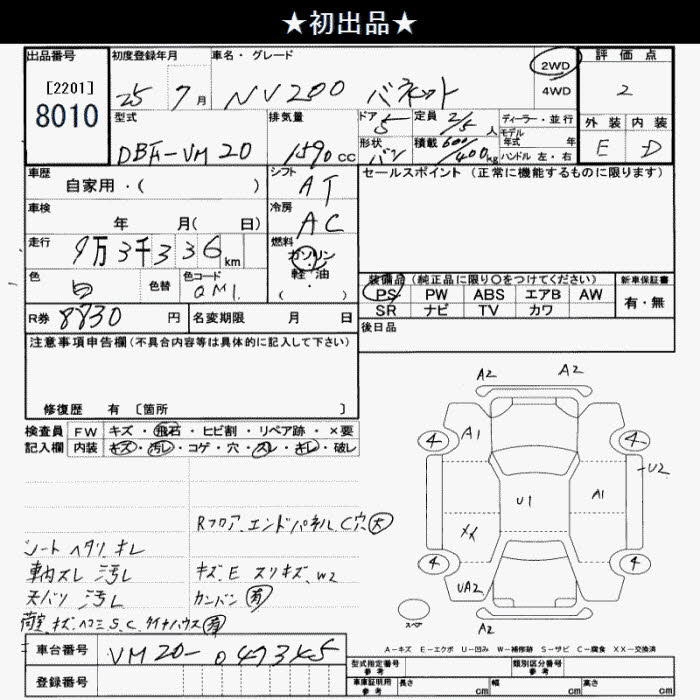 ★初出品★
出品番号 初度登録年月 車名・グレード 2WD 評価点
[2201] 25 7月 NV200 バネット 4WD 2
8010 型式 排気量 ドア 5 定員 2/5人 ディーラー・並行 外装 内装
DBF-VM20 1590cc 形状 バン 積載 600/400kg モデル年式 年 E D
ハンドル 左・右
車歴 シフト AT セールスポイント(正常に機能するものに限ります)
自家用・( )
車検 冷房 AC
年 月( 日)
走行 9万3千336km 燃料 ガソリン
軽油
・( )
色 白 色替 色コード QM1 装備品(純正品に限り○をつけてください) 新車保証書
PS PW ABS エアB AW 有・無
R券 8830円 名変期限 月 日 SR ナビ TV カワ
注意事項申告欄(不具合内容等は具体的に記入して下さい) 後日品
修復歴 有 〔箇所 〕
検査員 FW キズ・飛石・ヒビ割・リペア跡・×要
記入欄 内装 キズ・汚レ・コゲ・穴・スレ・キレ・破レ
A2 A2
A1
4 4
U2
U1 A1
XX
4 4
UA2
スペア
A2
Rフロア、エンドパネルC穴 大
シート ヘタリ、キレ
車内スレ 汚レ キズ、E スリキズ、W2
天バリ 汚レ カンバン 有
荷室 キズ、ヘコミ、S、C、タイヤハウスS 有
A-キズ E-エクボ U-凹み W-補修跡 S-サビ C-腐食 XX-交換済
車台番号 VM20-049345
型式指定番号 参考 類別区分番号 参考
登録番号 車庫証明用 参考 長さ cm 幅 cm 高さ cm